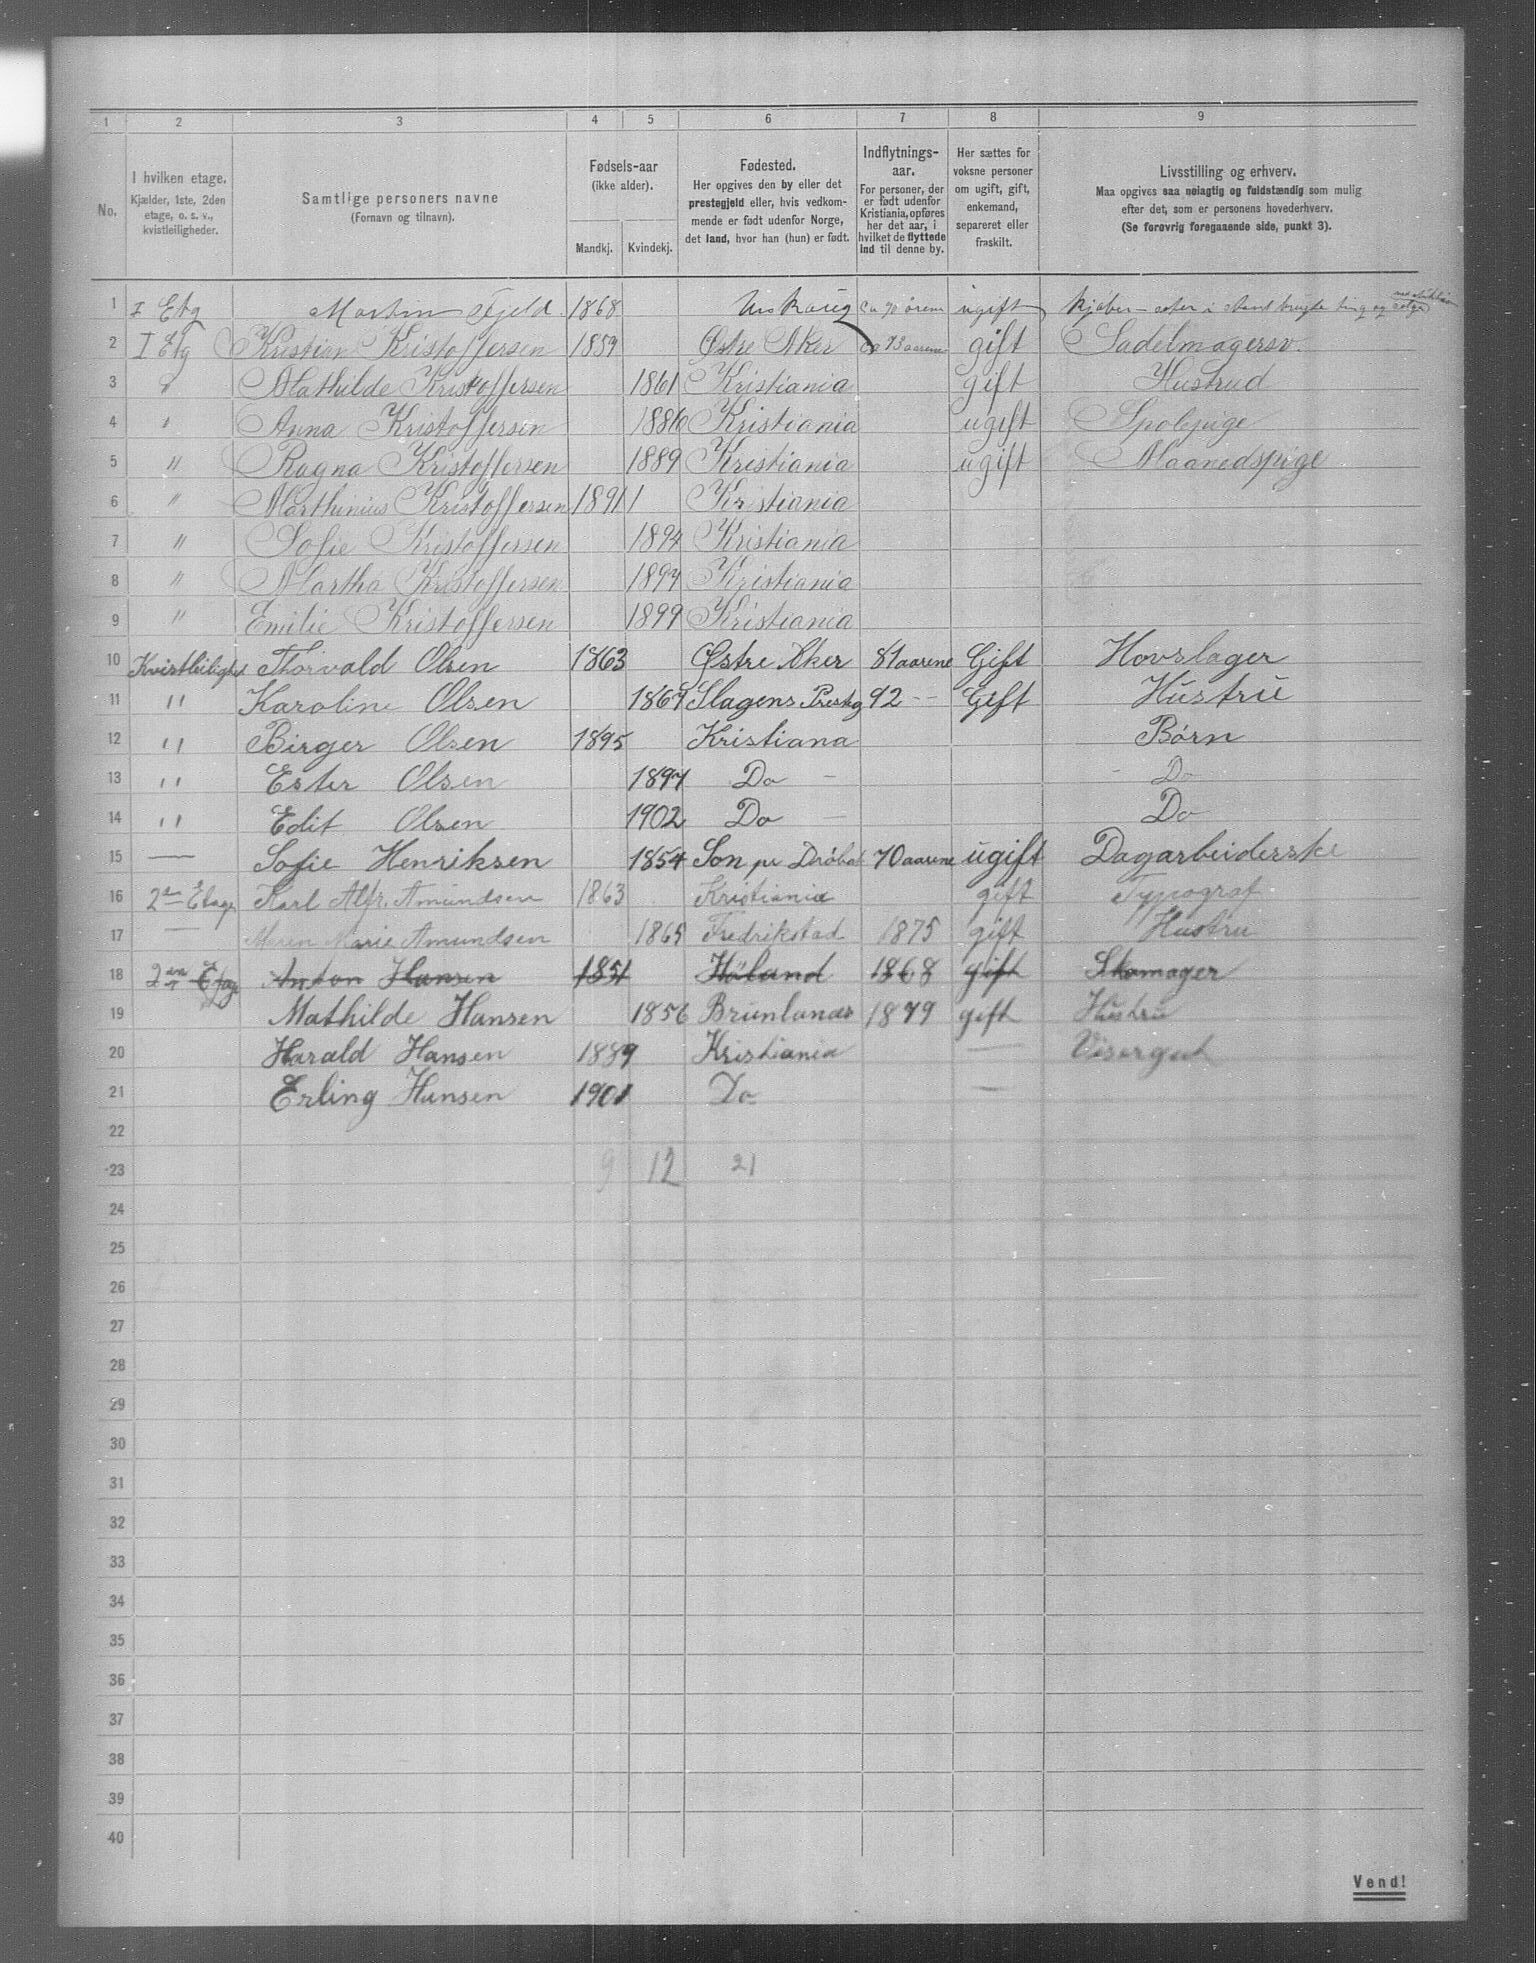 1 2 3 4 5 6 7 8 9
No.
I hvilken etage.
Kjælder, 1ste, 2den
etage, o. s. v.,
kvistleiligheder.
Samtlige personers navne
(Fornavn og tilnavn).
Fødsels-aar
(ikke alder).
Mandkj. Kvindekj.
Fødested.
Her opgives den by eller det
prestegjeld eller, hvis vedkom-
mende er født udenfor Norge,
det land, hvor han (hun) er født.
Indflytnings-
aar.
For personer, der
er født udenfor
Kristiania, opføres
her det aar, i
hvilket de flyttede
ind til denne by.
Her sættes for
voksne personer
om ugift, gift,
enkemand,
separeret eller
fraskilt.
Livsstilling og erhverv.
Maa opgives saa nøiagtig og fuldstændig som mulig
efter det, som er personens hovederhverv.
(Se forøvrig foregaaende side, punkt 3).
1 I Etg Martin Fjeld 1868 Urskoug ugift Kjøber
2 I Etg Kristian Kristoffersen 1859 Østre Aker Ca 73 aarene gift Sadelmagersv.
3 " Mathilde Kristoffersen 1861 Kristiania gift Hustrud
4 " Anna Kristoffersen 1886 Kristiania ugift
5 " Ragna Kristoffersen 1889 Kristiania ugift Maanedspige
6 " Marthinius Kristoffersen 1891 Kristiania
7 " Sofie Kristoffersen 1894 Kristiania
8 " Martha Kristoffersen 1897 Kristiania
9 " Emilie Kristoffersen 1899 Kristiania
10 Kvistleilighed Thorvald Olsen 1863 Østre Aker 81 aarene Gift Hovslager
11 " Karoline Olsen 1867 Slagens Prestg 92 - - Gift Hustru
12 " Birger Olsen 1895 Kristiana Børn
13 " Ester Olsen 1897 Do - Do
14 " Edit Olsen 1902 Do - Do
15 — Sofie Henriksen 1854 Son pr Drøbak 70 aarene ugift Dagarbeiderske
16 2den Etage Karl Alfr. Amundsen 1863 Kristiania gift Typograf
17 — Maren Marie Amundsen 1865 Fredrikstad 1875 gift Hustru
18 2en Etage Anton Hansen 1851 Høland 1868 gift Skomager
19 Mathilde Hansen 1856 Brunlanäs 1879 gift Hustru
20 Harald Hansen 1889 Kristiania — Visergut
21 Erling Hansen 1901 Do —
22
23 9 12 21
24
25
26
27
28
29
30
31
32
33
34
35
36
37
38
39
40
Vend!